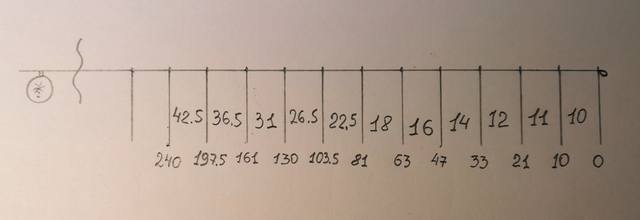 42.5 36.5 31 26.5 22,5 18 16 14 12 11 10
240 197.5 161 130 103.5 81 63 47 33 21 10 0